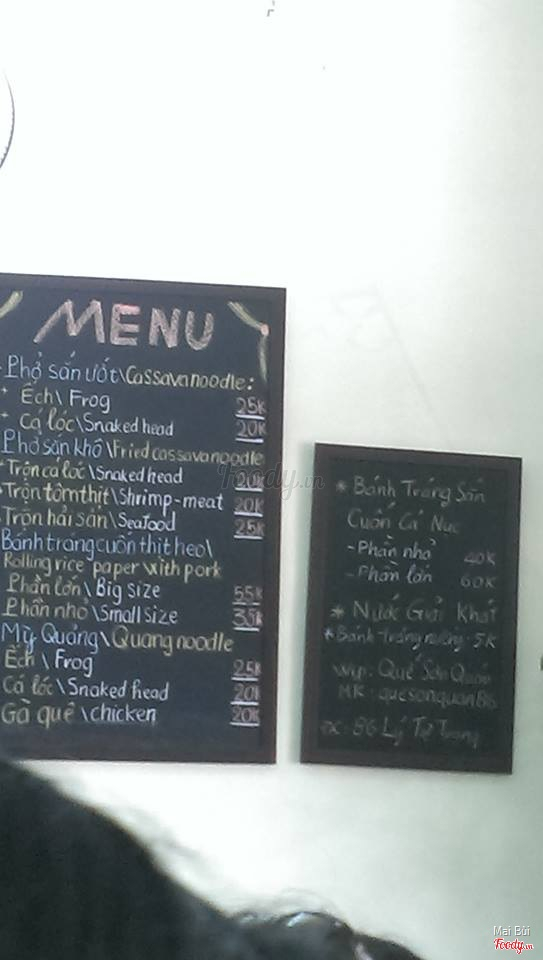 MENU
Phở sắn ướt\Cassava noodle:
Ếch\ Frog 25K
Cá lóc\Snaked head 20K
Phở sắn khô\Fried cassava noodle
Trộn cá lóc\Snaked head 20K
Trộn tôm thịt\Shrimp-meat 20K
Trộn hải sản\Seafood 25K
Bánh tráng cuốn thịt heo\
Rolling rice paper with pork
Phần lớn\Big size 55K
Phần nhỏ\Small size 35K
Mỳ Quảng\Quang noodle
Ếch\Frog 25K
Cá lóc\Snaked head 20K
Gà quê\chicken 20K
* Bánh Tráng Sắn
Cuốn Cá Nục
-Phần nhỏ 40K
-Phần lớn 60K
* Nước Giải Khát
*Bánh Tráng nướng 5K
Wifi: Quế Sơn Quán
MK: quesonquan86
ĐC: 86 Lý Tự Trọng
Foody.vn
Mai Bùi
Foody.vn